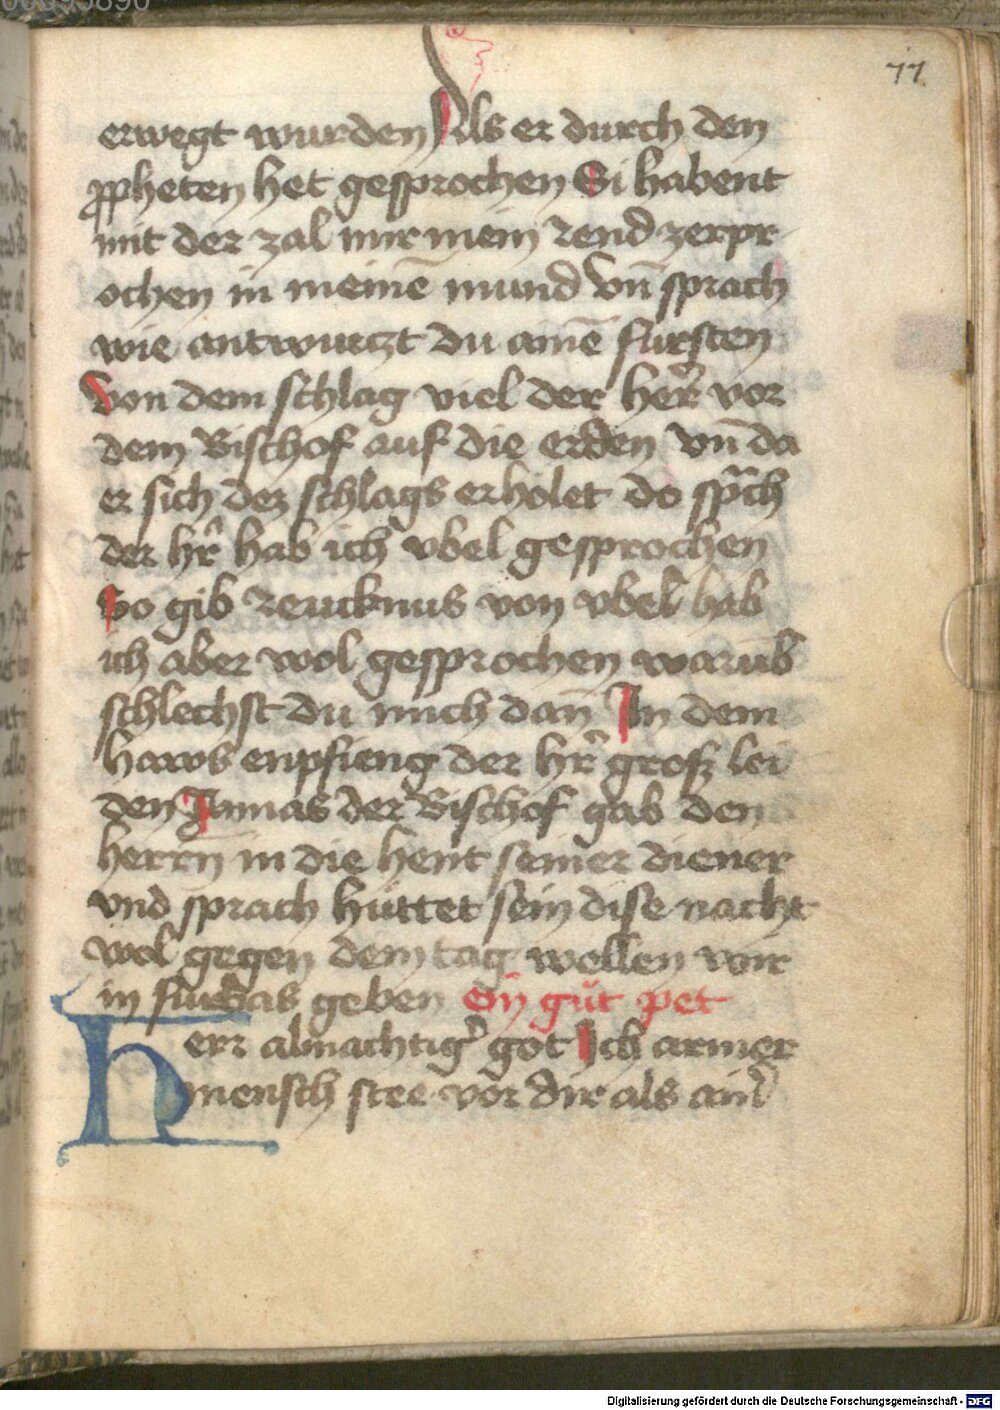 77
erwegt wurden Als er durch den
propheten het gesprochen Si habent
mit der zal mir mein zend zerpr
ochen in meinē mund vn̄ sprach
wie antwurczt du ainē fursten
Von dem schlag viel der her̄ vor
dem Bischof auf die erden vn̄ da
er sich dez schlags erholet do sprach
der hr̄ hab ich vbel gesprochen
So gib zeucknus von vbel hab
ich aber wol gesprochen warūb
schlechst du mich dan̄ In dem
haws enpfieng der hr̄ grosz lei
den Annas der Bischof gab den
herrn̄ in die hent seiner diener
vnd sprach hüttet sein dise nacht
wol gegen dem tag wellen wir
in geben ein gůt pet
Herr almachtiger got Ich armer
mensch stee vor dir als ain̄
Digitalisierung gefördert durch die Deutsche Forschungsgemeinschaft - DFG